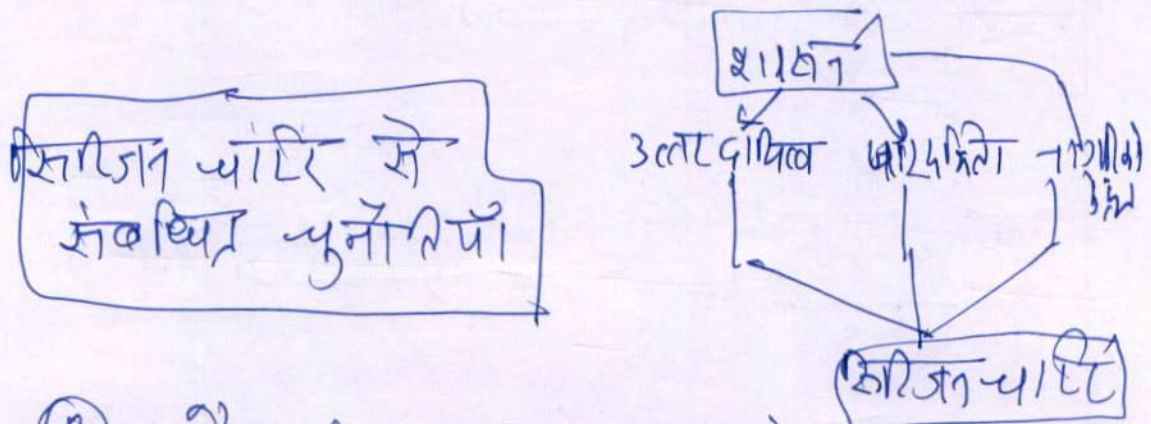 सिटिजन चार्टर से
संबंधित चुनौतियाँ
शासन
उत्तरदायित्व पारदर्शिता नागरिको
सिटिजन चार्टर